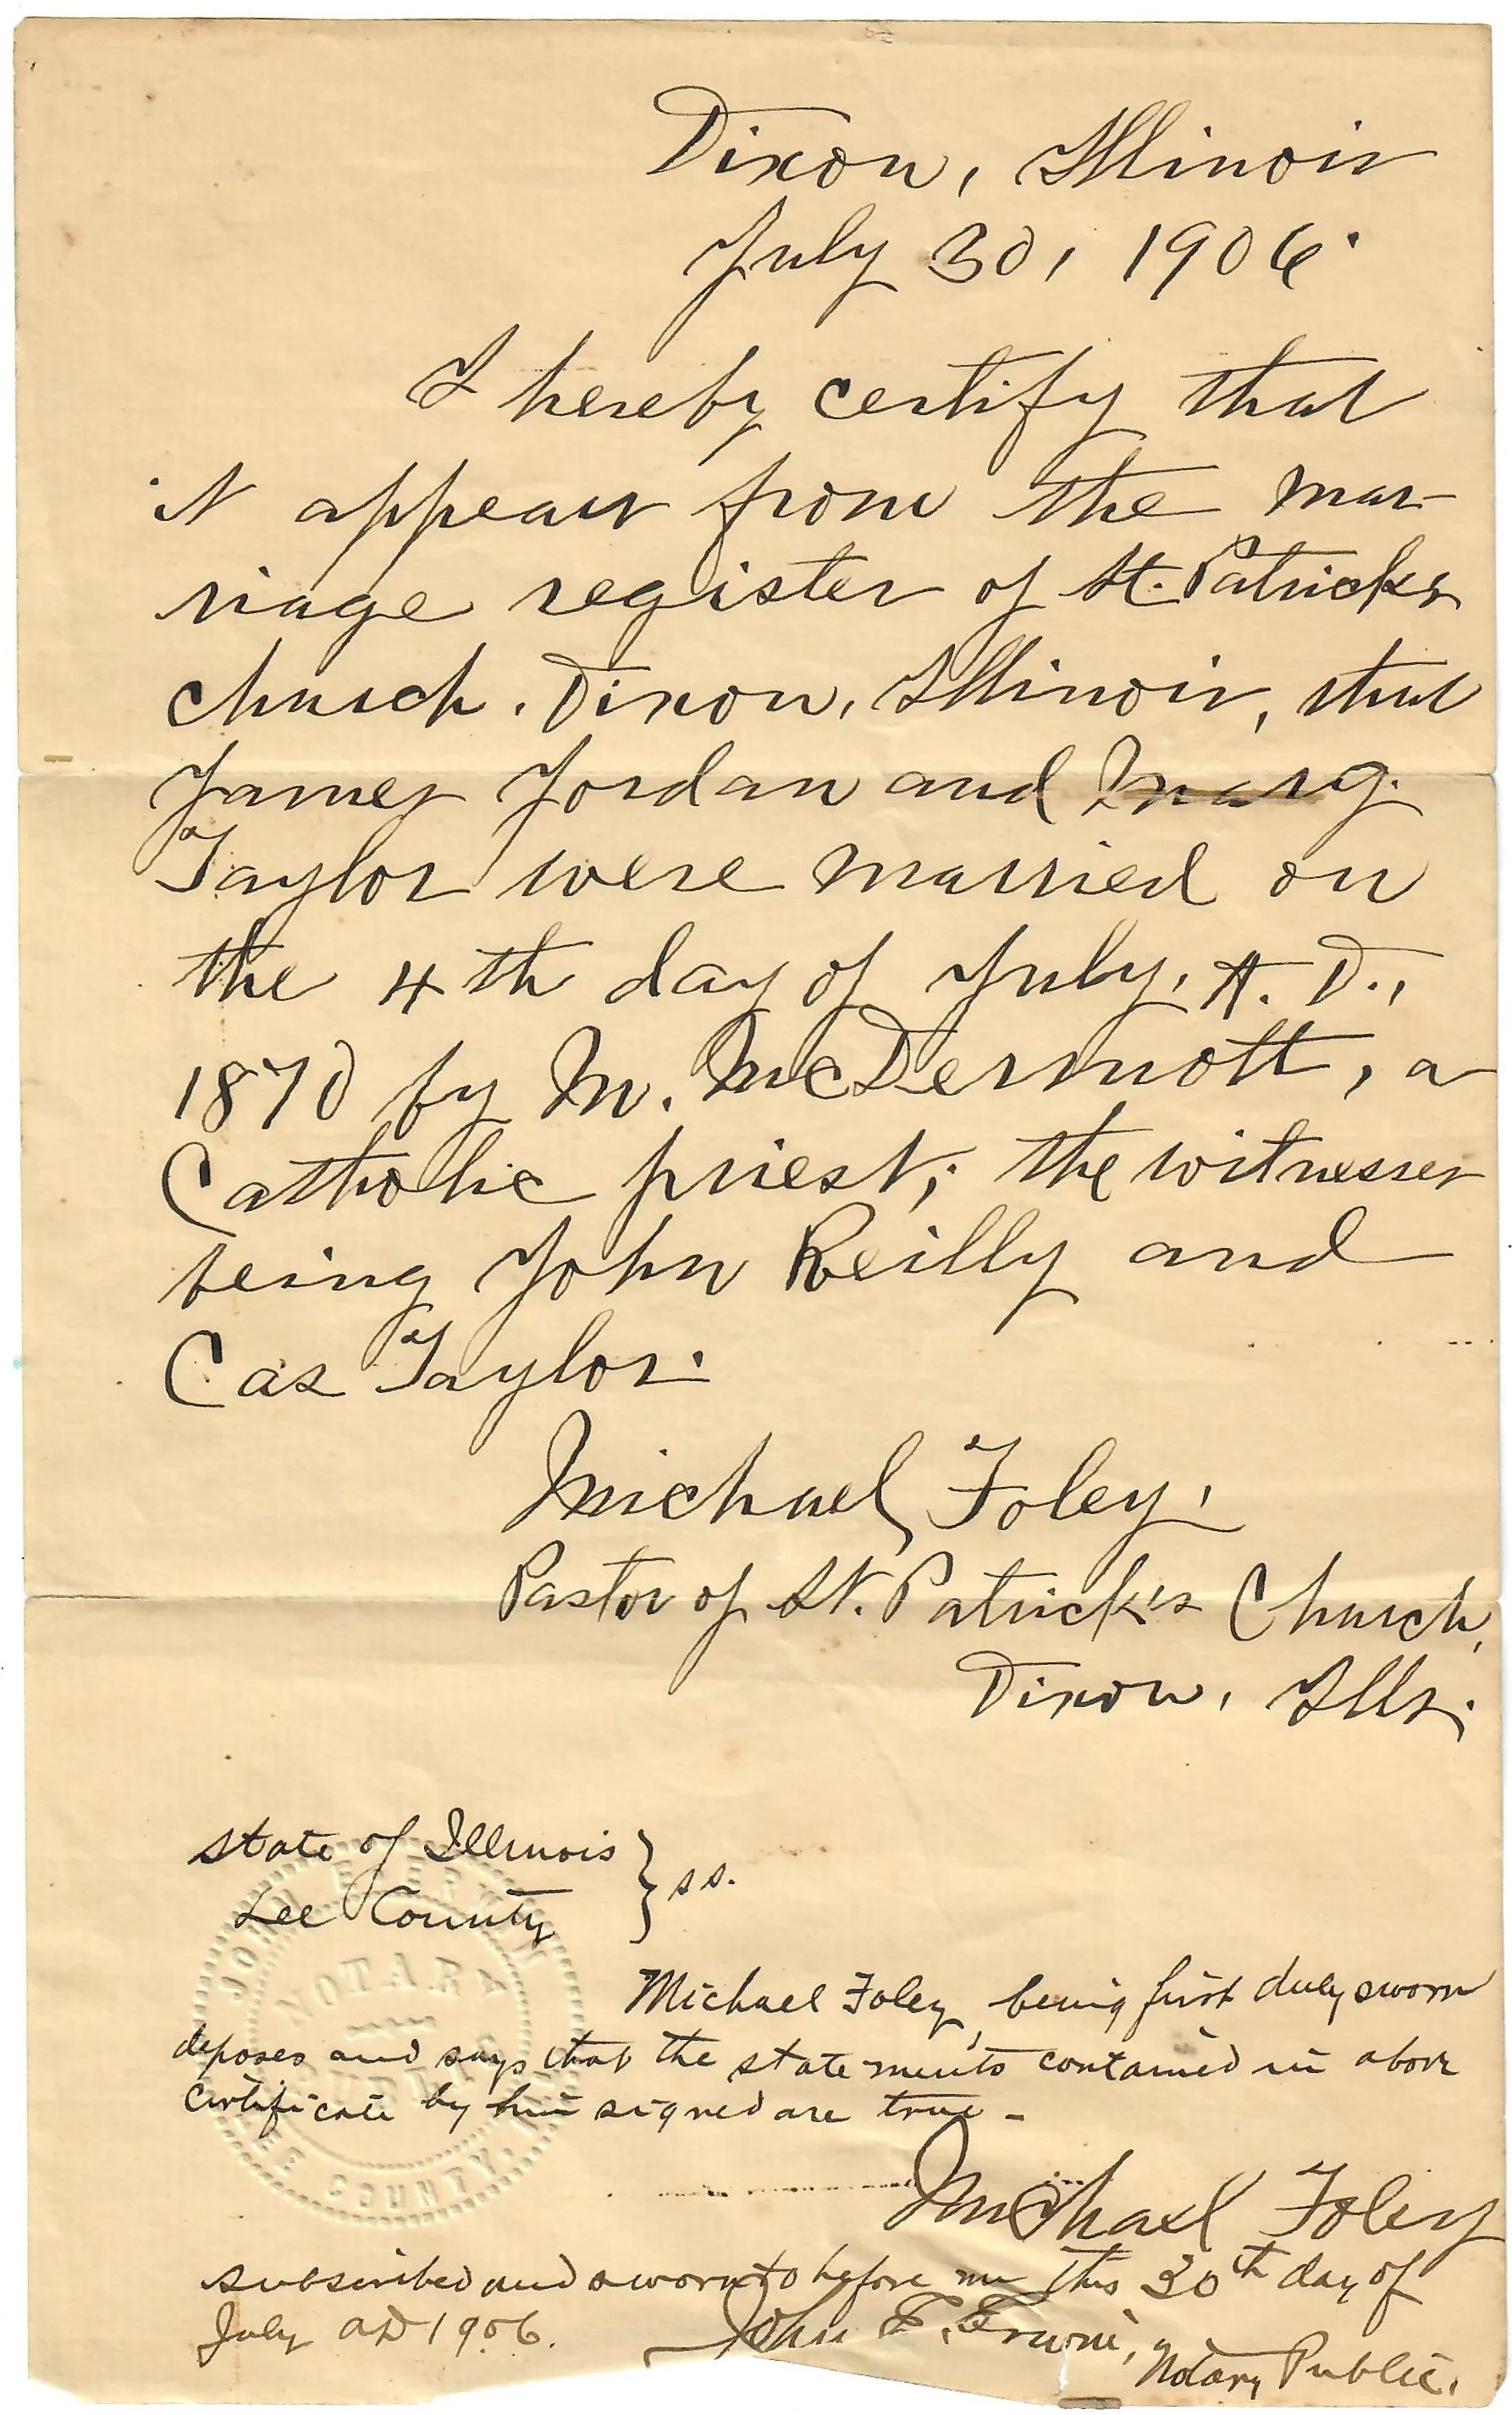 Dixon, Illinois
July 30, 1906.
I hereby certify that
it appears from the mar-
riage register of St. Patricks
church, Dixon, Illinois, that
James Jordan and Marg.
Taylor were married on
the 4th day of July, A. D.,
1870 by M. McDermott, a
Catholic priest; the witnesses
being John Reilly and
Cas Taylor.
Michael Foley,
Pastor of St. Patrick's Church,
Dixon, Ills.
State of Illinois } ss.
Lee County
Michael Foley, being first duly sworn
deposes and says that the statements contained in above
certificate by him signed are true -
Michael Foley
Subscribed and sworn to before me this 30th day of
July AD 1906.
John E. Erwin, Notary Public.
JOHN
NOTARY
LEE COUNTY,